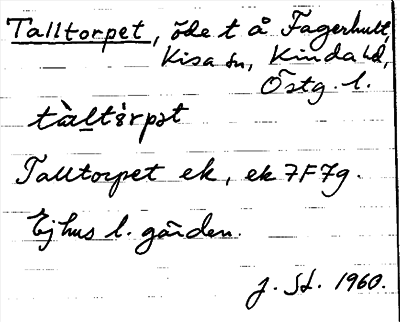 Talltorpet, öde t å Fagerhult,
Kisa sn, Kinda hd,
Östg. l.
Talltorpet ek, ek 7F7g.
Ej hus l. gården.
J. St. 1960.